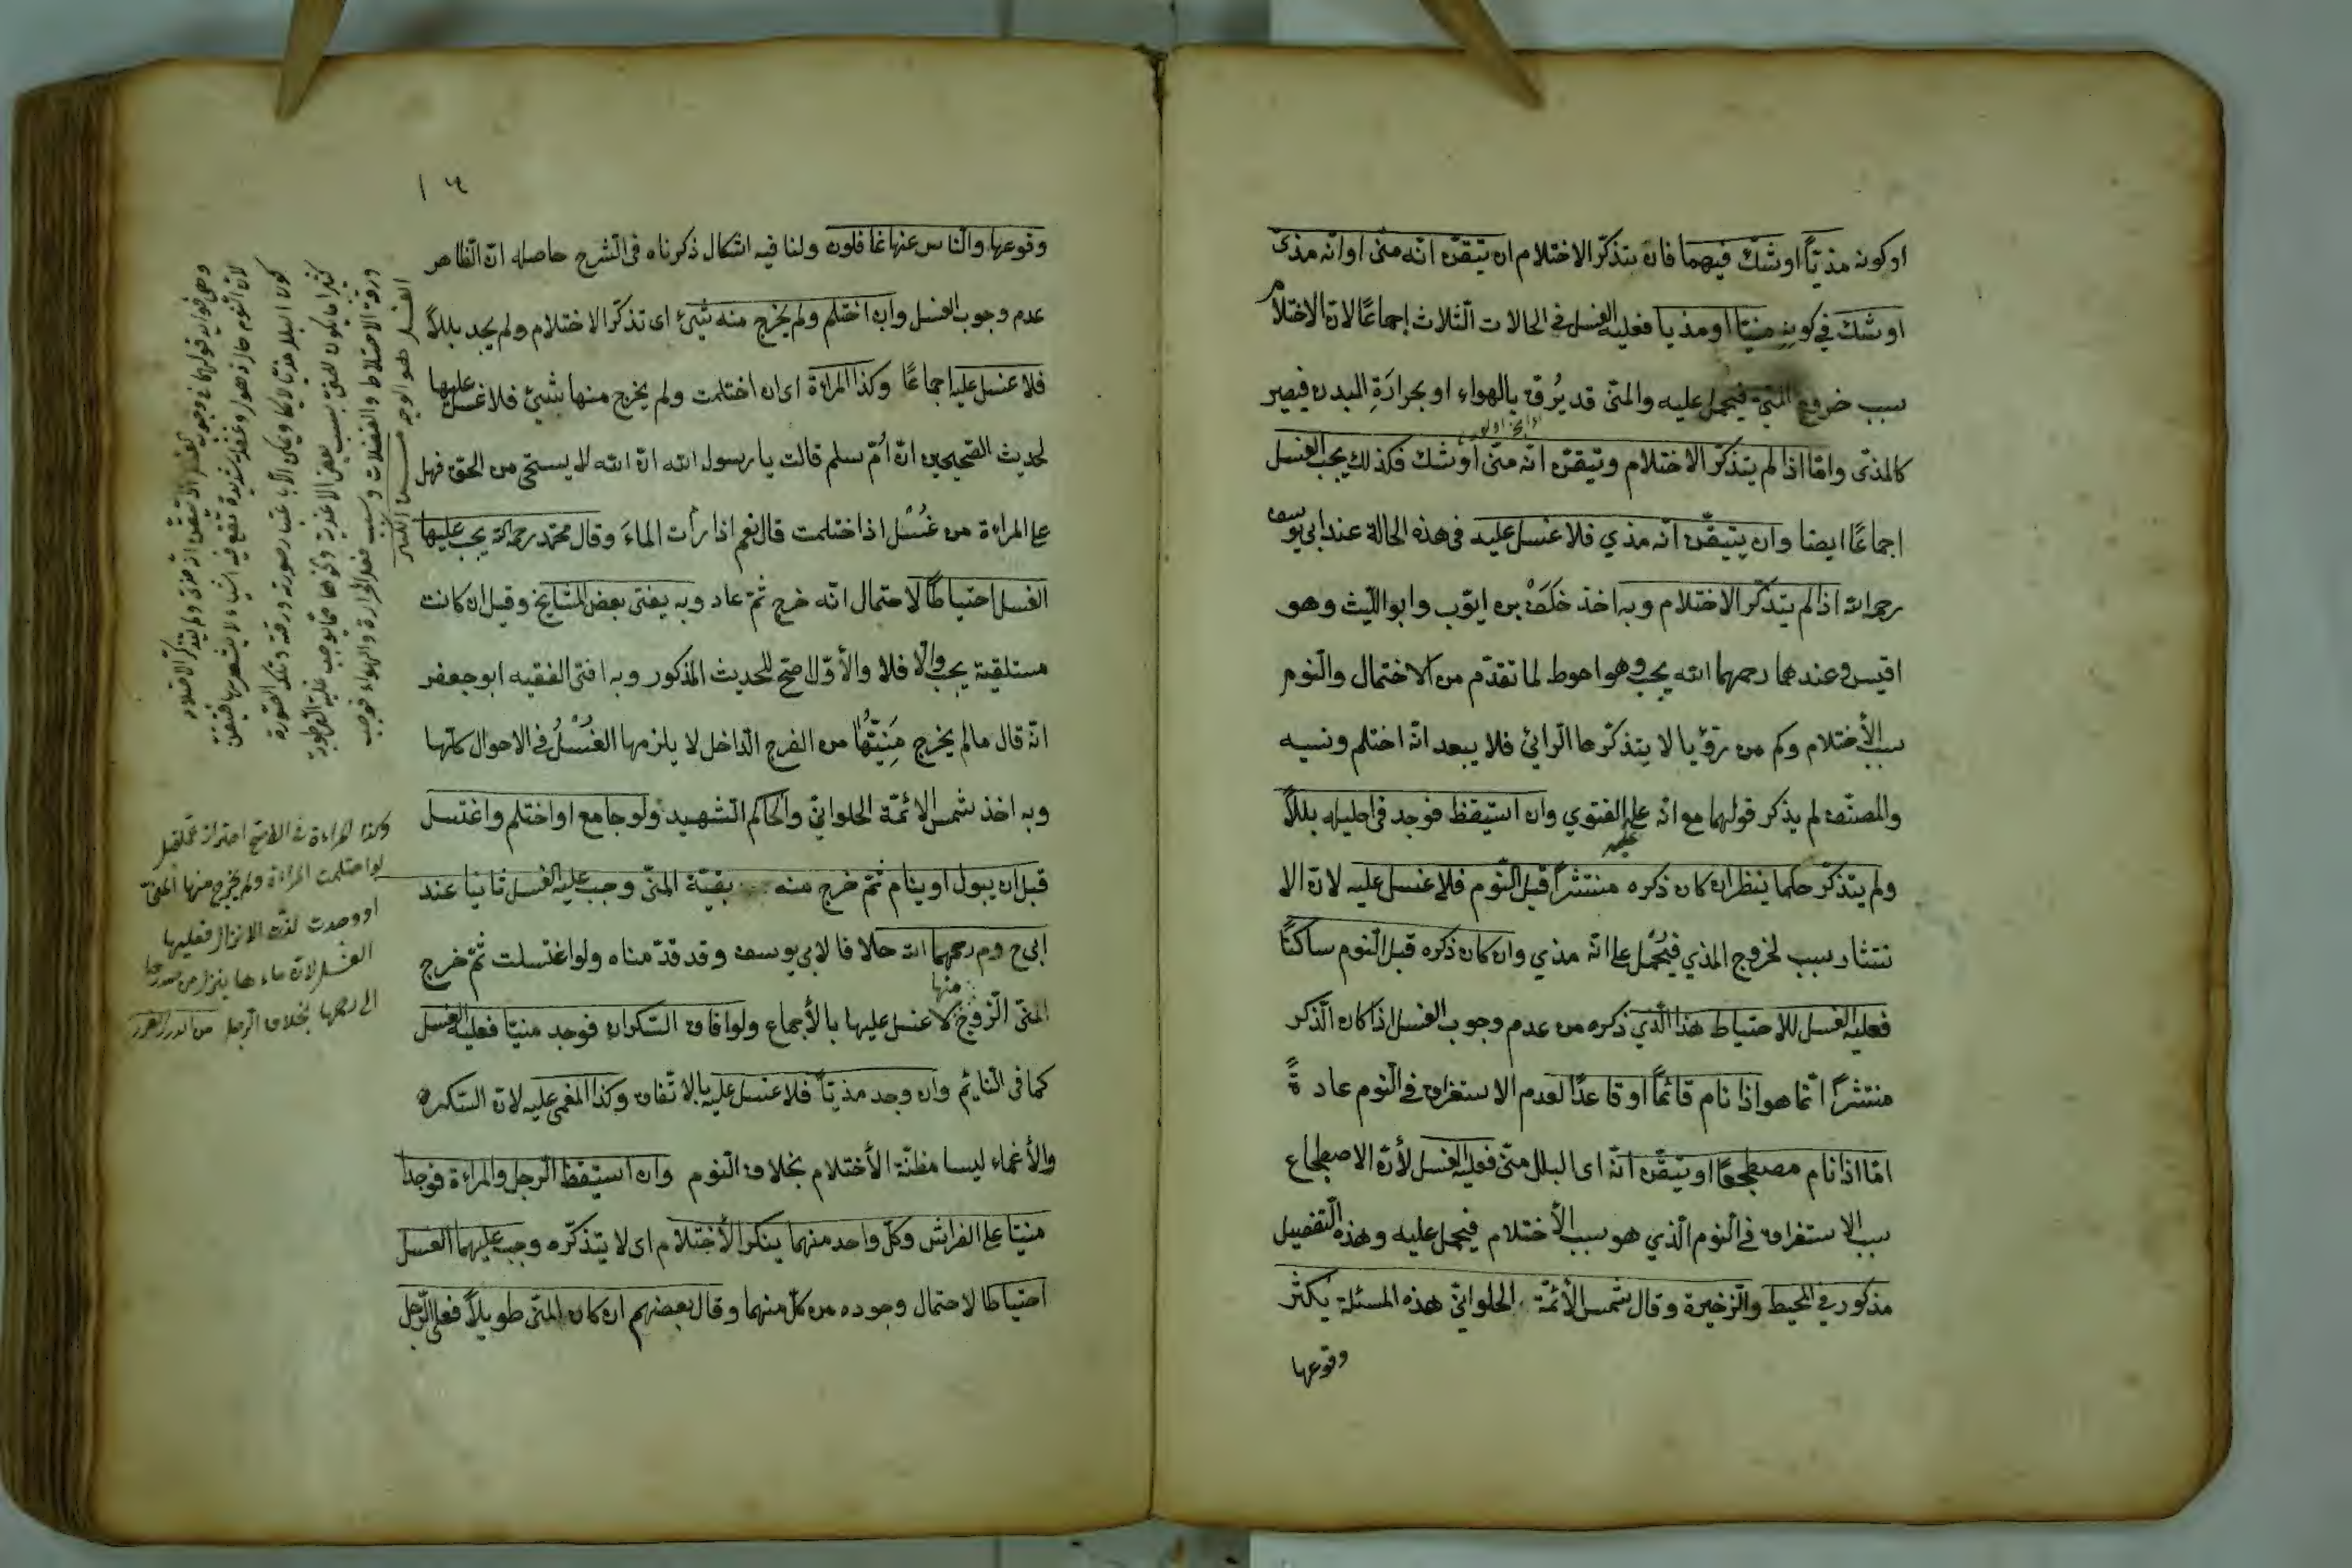 اوكونه مذيّاً اوشكّ فيهما فان يتذكّر الاحتلام ان تيقّن انّه منى او انّه مذىّ
اوشكّ في كونه منيّا اومذيا فعليه الغسل في الحالات الثلاث إجماعًا لانّ الاحتلام
سبب خروج المنىّ فيحمل عليه والمنىّ قد يُرقّ بالهواء او بحرارَةِ البدن فيصير
كالمذىّ وامّا اذا لم يتذكّر الاحتلام وتيقّن انّه منىّ أوشكّ فكذلك يجب الغسل
اجماعًا ايضا وان يتيقّن انّه مذي فلا غسل عليه في هذه الحالة عند ابي يوسف
رحمه الله اذا لم يتذكّر الاحتلام وبه اخذ خَلَفْ بن ايّوب وابو اللّيث وهو
اقيس وعندهما رحمهما الله يجب وهو احوط لما تقدّم من الاحتمال والنّوم
سبب الأحتلام وكم من رؤيا لا يتذكّرها الرّائيّ فلا يبعد انّه احتلم ونسيه
والمصنّف لم يذكر قولهما مع انّه على الفتوي وان استيقظ فوجد في احليله بللاً
ولم يتذكّر حلما ينظر ان كان ذكره منتشراً قبل النّوم فلا غسل عليه لانّ الا
نتشار سبب لخروج المذي فيُحْمل على انّه مذي وان كان ذكره قبل النّوم ساكنًا
فعليه الغسل للاحتياط هذا الّذي ذكره من عدم وجوب الغسل اذا كان الذّكر
منتشراً انّما هو اذا نام قائمًا او قاعدًا لعدم الاستغراق في النّوم عادةً
امّا اذا نام مضطجعًا او تيقّن انّه اى البلل منىّ فعليه الغسل لأنّ الاضطجاع
سبب الاستغراق في النّوم الّذي هو سبب الأحتلام فيحمل عليه وهذه التّفصيل
مذكور في المحيط والذّخيرة وقال شمس الأئمّة الحلوانيّ هذه المسئلة يكثر
وقوعها
وقوعها والنّاس عنها غافلون ولنا فيه اشكال ذكرناه في الشّرح حاصله انّ الظّاهر
عدم وجوب الغسل وان احتلم ولم يخرج منه شئ اى تذكّر الاحتلام ولم يجد بللاً
فلا غسل عليه اجماعًا وكذا المراءة اى ان احتلمت ولم يخرج منها شئ فلا غسل عليها
لحديث الصّحيحين انّ اُمّ سليم قالت يا رسول الله انّ الله لا يستحى من الحقّ فهل
على المراءة من غُسْل اذا احتلمت قال نعم اذا رأت الماءَ وقال محمّد رحمه الله يجب عليها
الغسل احتياطًا لاحتمال انّه خرج ثمّ عاد وبه يفتى بعض المشايخ وقيل ان كانت
مستلقية يجب والّا فلا والأوّل اصحّ للحديث المذكور وبه افتى الفقيه ابو جعفر
انّه قال ما لم يخرج مَنِيُّهَا من الفرج الدّاخل لا يلزمها الغُسْلُ في الاحوال كلّها
وبه اخذ شمس الائمّة الحلوانيّ والحاكم الشّهيد ولو جامع او احتلم واغتسل
قبل ان يبول او ينام ثمّ خرج منه بقيّة المنىّ وجب عليه الغسل ثانيا عند
ابى ح وم رحمهما الله خلافا لابى يوسف وقد قدّمناه ولو اغتسلت ثمّ خرج
منها
المنىّ الزّوج لا غسل عليها بالأجماع ولو افاق السّكران فوجد منيّا فعليه الغسل
كما في النّائم وان وجد مذيّاً فلا غسل عليه بالاتّفاق وكذا المغمى عليه لانّ السّكر
والأغماء ليسا مظنّة الأحتلام بخلاف النّوم وان استيقظ الرّجل والمراءة فوجدا
منيّا على الفراش وكلّ واحد منهما ينكر الأحتلام اى لا يتذكّره وجب عليهما الغسل
احتياطا لاحتمال وجوده من كلّ منهما وقال بعضهم ان كان المنىّ طويلاً فعلى الرّجل
وكذا المراءة في الاصحّ احتراز عمّا قيل
لو احتلمت المراءة ولم يخرج منها المنىّ
او وجدت لذّت الانزال فعليها
الغسل لانّ ماءها ينزل من صدرها
الى رحمها بخلاف الرّجل من الدرر الغرر